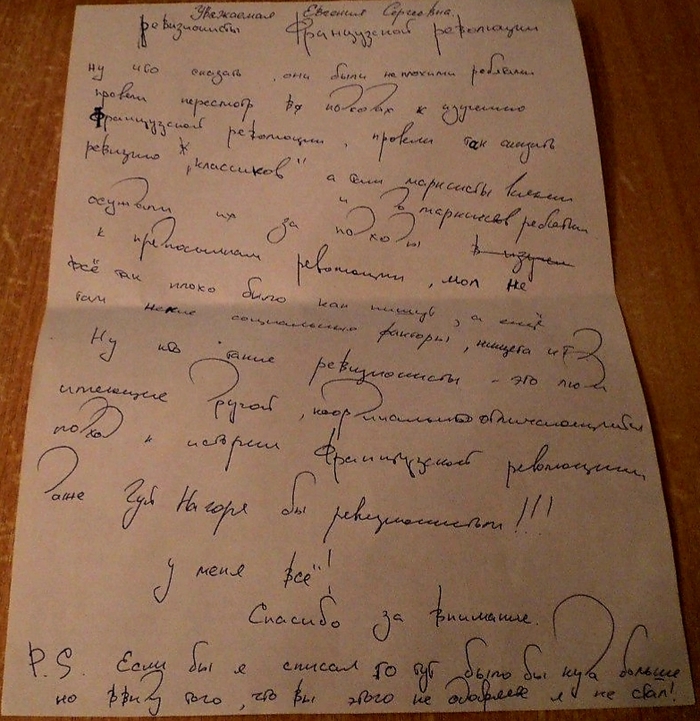 Уважаемая Евгения Сергеевна
ревизионисты Французской революции
ну что сказать, они были неплохими ребятами
провели пересмотр в подходах к изучению
Французской революции, провели так сказать
ревизию "классиков" а там марксисты всякие
и марксисов ребятки
осуждали их за подходы в изучен
к предпосылкам революции, мол не
всё так плохо было как пишут, а ещё
там некие социальные факторы, нищета и тд
Ну кто такие ревизионисты - это люди
имеющие другой, кардинально отличающийся
подход к истории Французской революции
Даже Гуй Нагоря бы ревизионистом!!!
у меня всё!
Спасибо за внимание.
P.S. Если бы я списал то тут было бы куда больше
но ввиду того, что вы этого не одобряете я не стал!